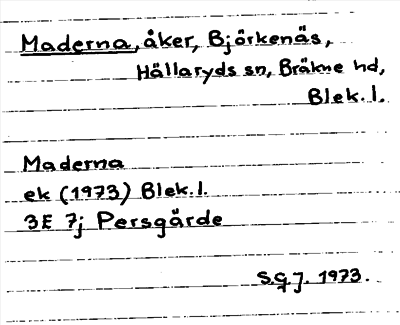 Maderna, åker, Björkenäs,
Hällaryds sn, Bräkne hd,
Blek. l.
Maderna
ek (1973) Blek. l.
3E 7j Persgärde
S.G.J. 1973.